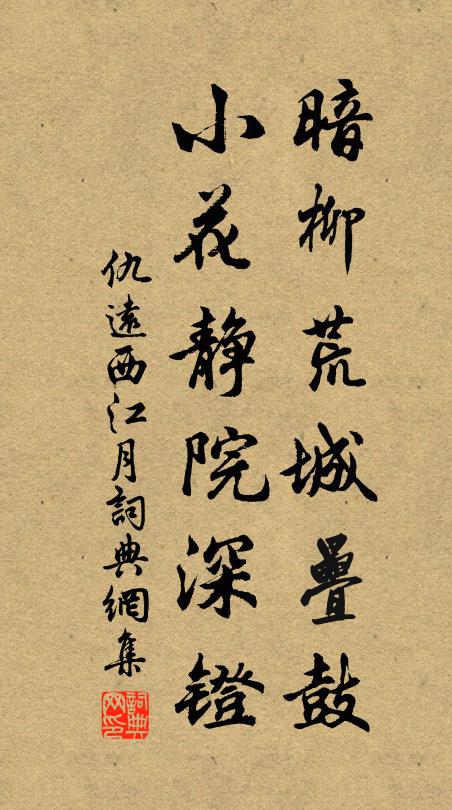 暗柳荒城疊鼓
小花静院深鐙
仇遠西江月詞典網集
詞典网印